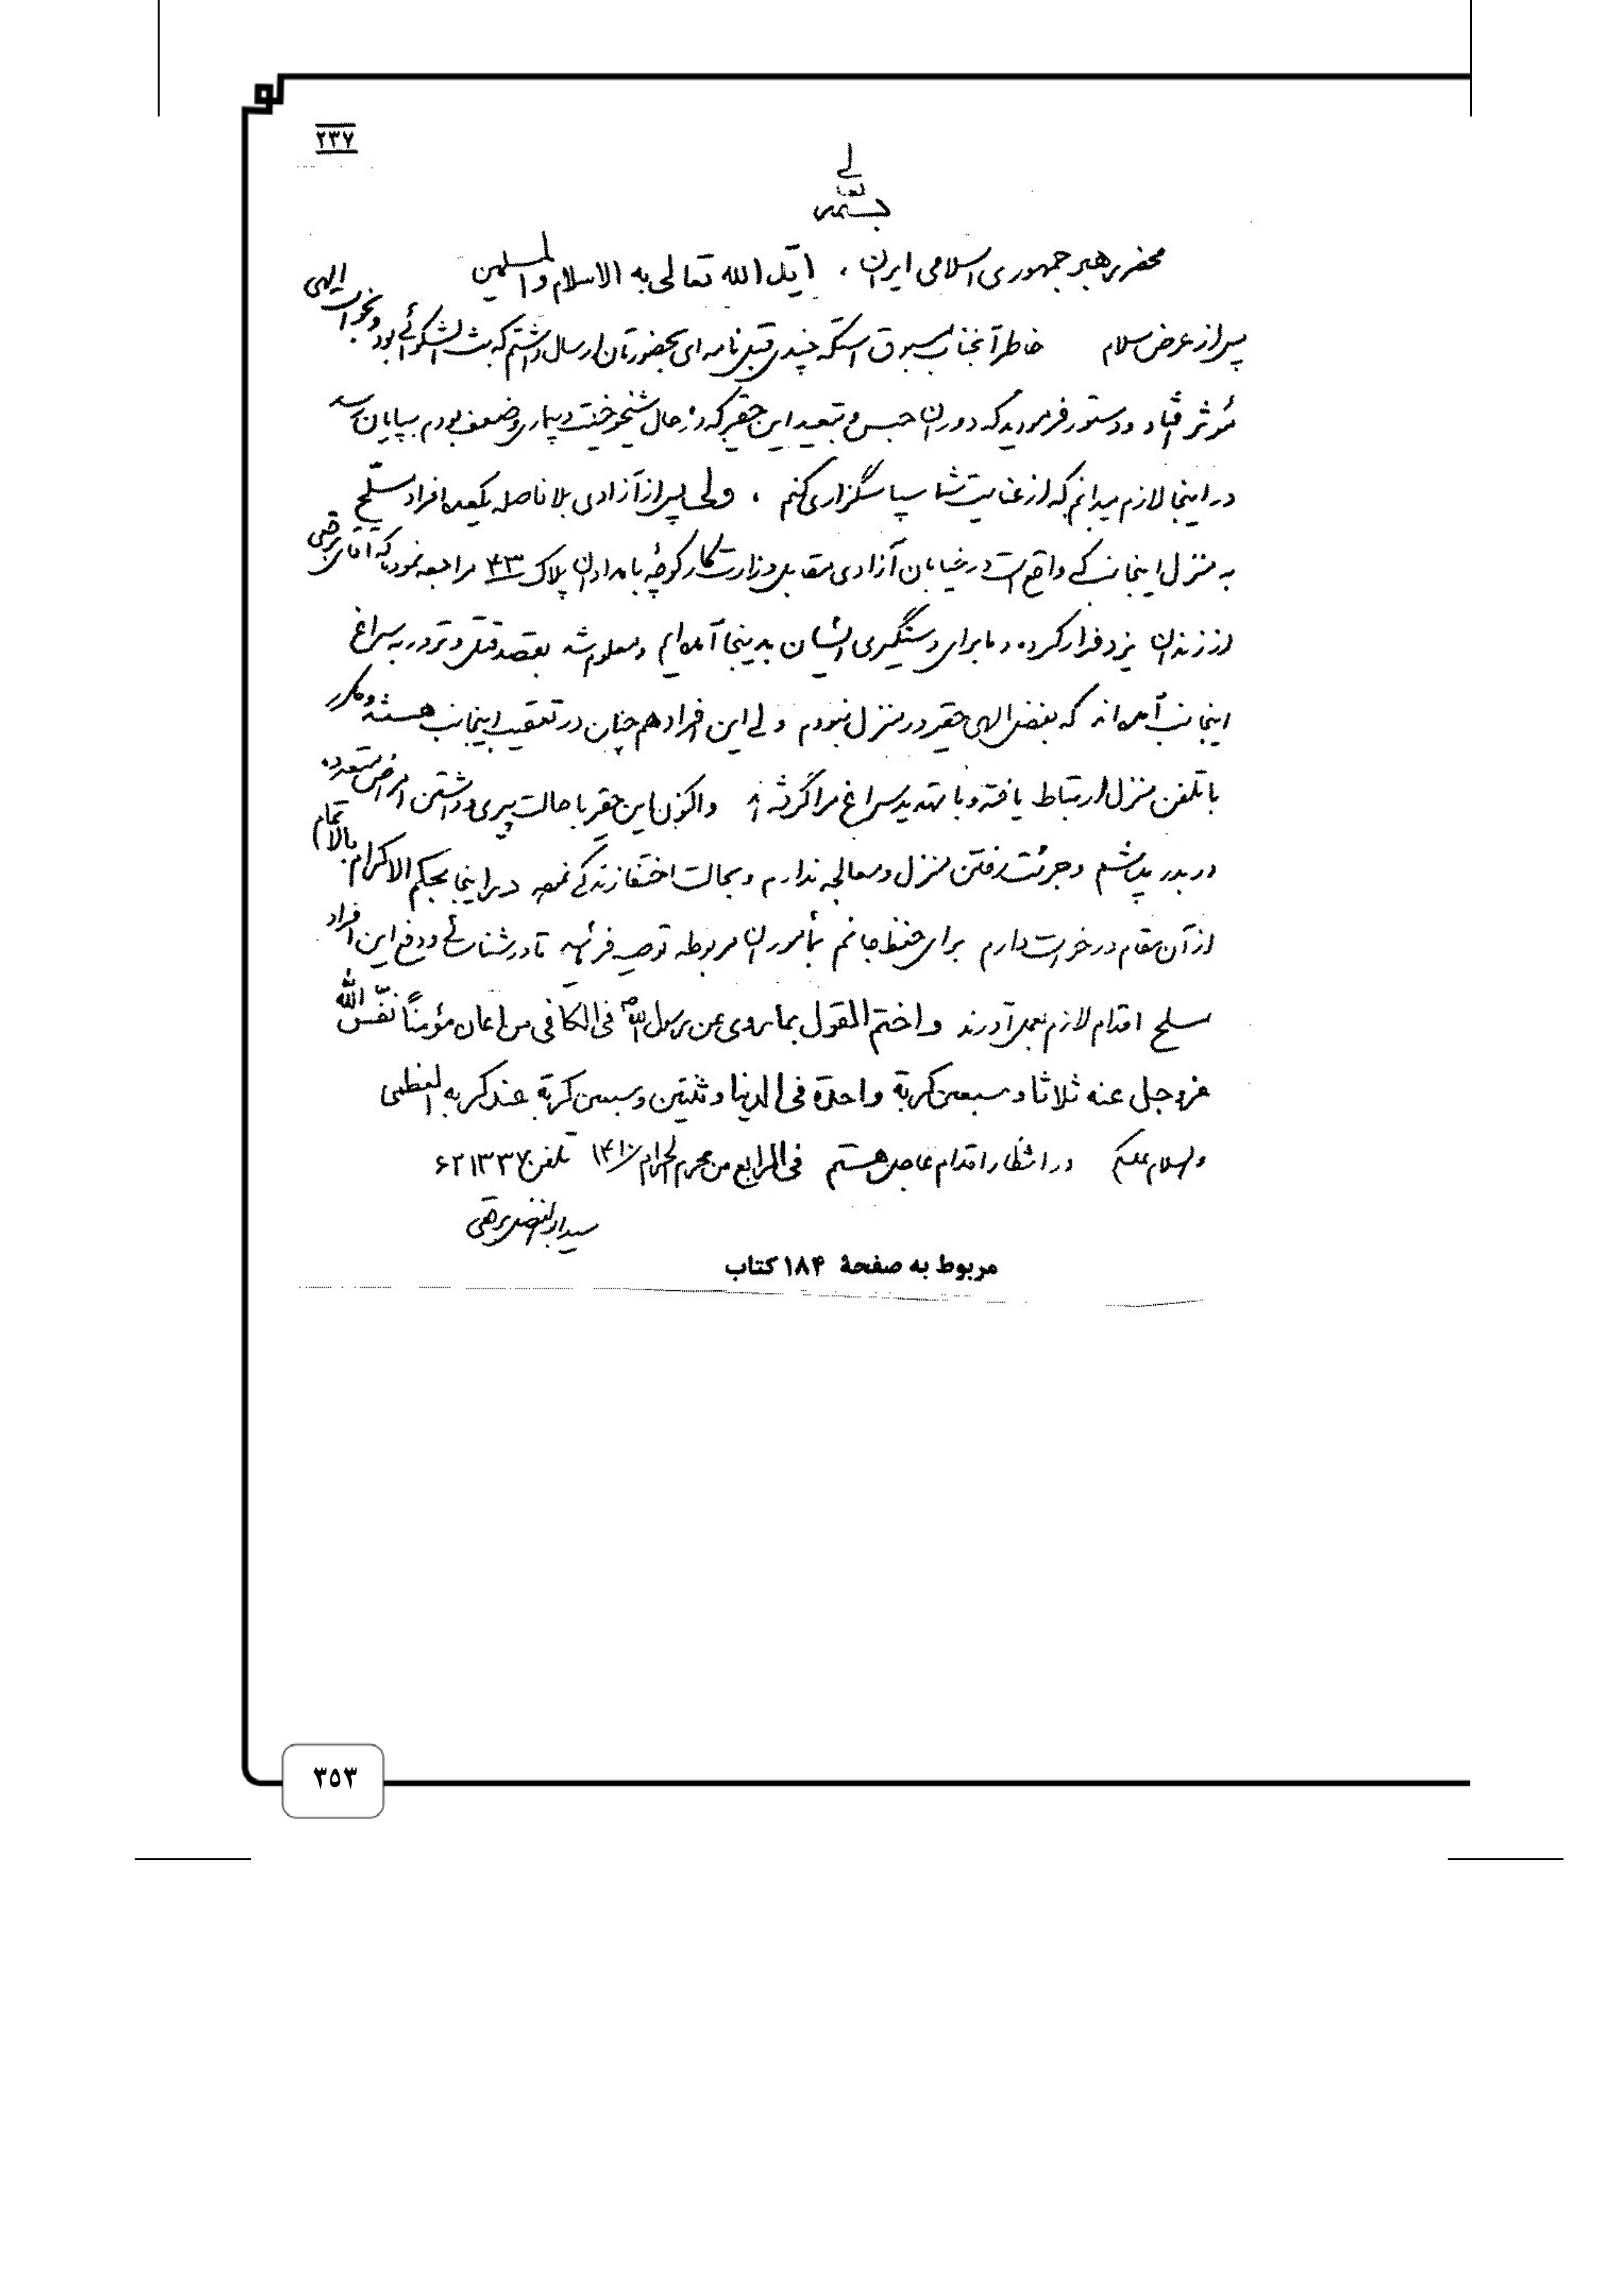 ۲۳۷
بسمه تعالی
محضر رهبر جمهوری اسلامی ایران ، ایّد الله تعالی به الاسلام و المسلمین
پس از عرض سلام خاطر آنجناب مسبوق استکه چندی قبل نامه ای بحضورتان ارسال داشتم که بث الشکوائی بود و بخواست الهی
مؤثر افتاد و دستور فرمودید که دوران حبس و تبعید این حقیر که در حال شیخوخیّت و بیماری و ضعف بودم بپایان رسد
در اینجا لازم میدانم که از عنایت شما سپاسگزاری کنم ، ولی پس از آزادی بلافاصله یکعده افراد مسلّح
به منزل اینجانب که واقع است در خیابان آزادی مقابل وزارت کار کوچهٔ بامدادان پلاک ۴۳ مراجعه نمودند که آقای برقعی
از زندان یزد فرار کرده و ما برای دستگیری ایشان بدینجا آمده ایم و معلوم شد بقصد قتل و ترور به سراغ
اینجانب آمده اند که بفضل الهی حقیر در منزل نبودم ولی این افراد هم چنان در تعقیب اینجانب هستند و مکرر
با تلفن منزل ارتباط یافته و با تهدید سراغ مرا گرفته اند و اکنون این حقیر با حالت پیری و داشتن امراض متعدده
دربدر شده ام و جرئت رفتن منزل و معالجه ندارم و بحالت اختفا زندگی نموده در اینجا بحکم الاکرام بالاتمام
از آن مقام درخواست دارم برای حفظ جانم بمأموران مربوطه توصیه فرمائید تا در شناسائی و دفع این افراد
مسلح اقدام لازم بعمل آورند و اختم القول بما روی عن رسول الله ص فی الکافی من اعان مؤمناً نفّس الله
عز و جل عنه ثلاثا و سبعین کربة واحدة فی الدنیا و ثنتین و سبعین کربة عند کربه العظمی
والسلام علیکم در انتظار اقدام عاجل هستم فی الرابع من محرم الحرام ۱۴۱۰ تلفن ۶۲۱۳۳۷
سید ابوالفضل برقعی
مربوط به صفحهٔ ۱۸۴ کتاب
۳۵۳